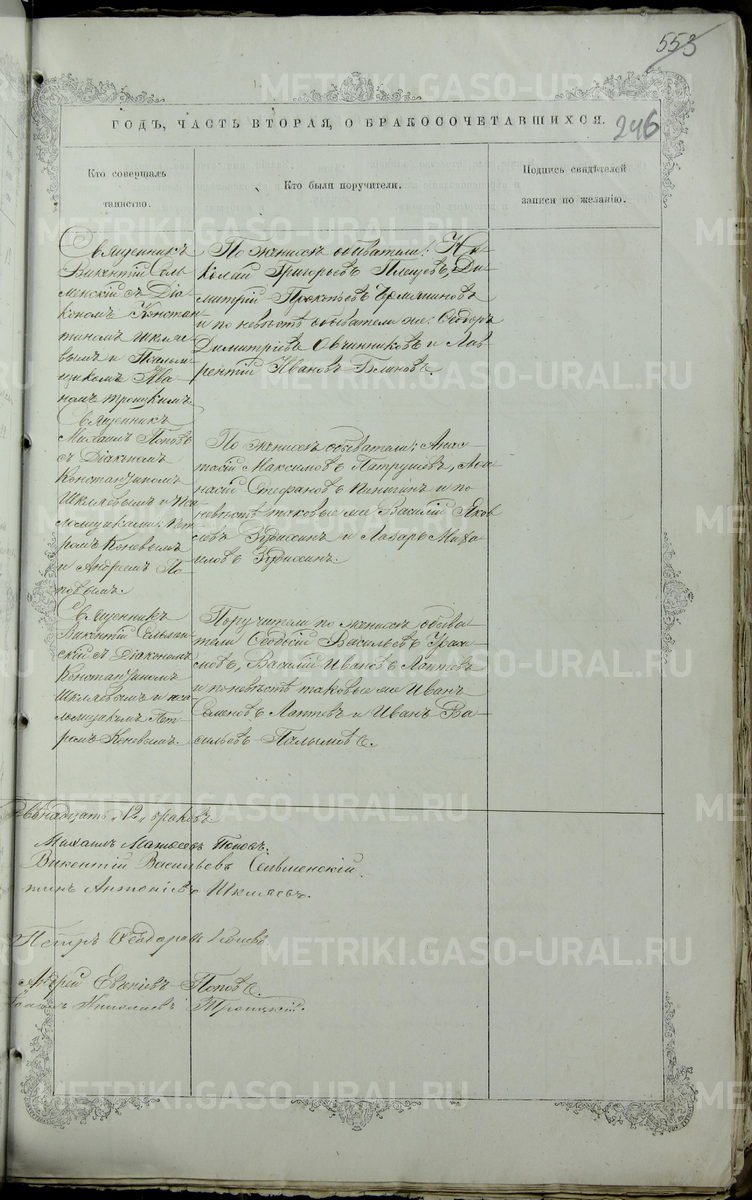 553
246
ГОДЪ, ЧАСТЬ ВТОРАЯ, О БРАКОСОЧЕТАВШИХСЯ.
Кто совершалъ
таинство.
Кто были поручители.
Подпись свидѣтелей
записи по желанію.
Священникъ
Викентій Сель
менскій съ Діа
кономъ Констан
тиномъ Шкляе
вымъ и Псалом
щикомъ Іоа
номъ Троицкимъ
По женихѣ обыватели: Ни
колай Григорьевъ Плецовъ, Ди
митрій Прокопьевъ Ермянинова
и по невѣстѣ обыватели же: Ѳеодоръ
Димитріевъ Овчинниковъ и Лав
рентій Ивановъ Блиновъ.
Священникъ
Михаилъ Поповъ
съ Діакономъ
Константиномъ
Шкляевымъ и Пса
ломщиками: Пет
ромъ Коневымъ
и Андреемъ По
повымъ.
По женихѣ обыватели: Анас
тасій Максимовъ Патрушевъ, Аѳа
насій Стефановъ Пинигинъ и по
невѣстѣ таковые же Василій Яков
левъ и Лазарь Миха
иловъ
Священникъ
Викентій Сельмен
скій съ Діакономъ
Константиномъ
Шкляевымъ и пса
ломщикомъ Пет
ромъ Коневымъ.
Поручители по женихѣ обыва
тели Ѳеодосій Васильевъ
Василій Ивановъ Лаптевъ
и по невѣстѣ таковые же Иванъ
Семеновъ Лаптевъ и Иванъ Ва
сильевъ Палымовъ.
двѣнадцать "12" браковъ
Михаилъ Матвеевъ Поповъ.
Викентій Васильевъ Сельменскій.
тинъ Антоніевъ Шкляевъ.
Петръ Ѳеодоровъ Коневъ
Андрей Поповъ.
Николаевъ Троицкій.
METRIKI.GASO-URAL.RU